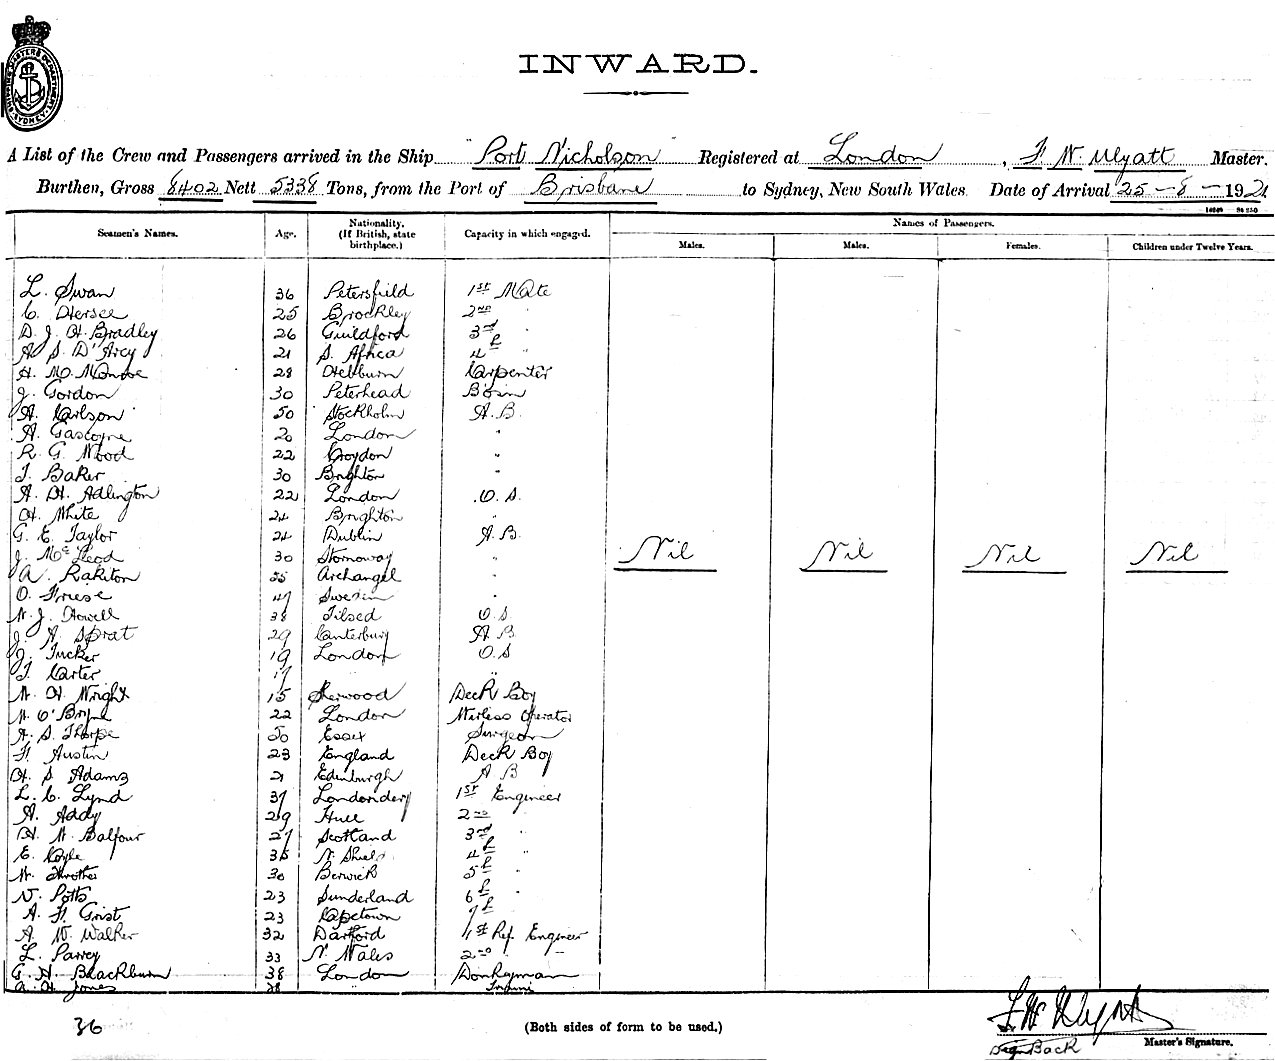 SHIPPING MASTER'S DEPARTMENT SYDNEY
INWARD.
A List of the Crew and Passengers arrived in the Ship "Port Nicholson Registered at London, F. W. Wyatt Master,
Burthen, Gross 8402 Nett 5338 Tons, from the Port of Brisbane to Sydney, New South Wales. Date of Arrival 25-8-1921
Seamen's Names. Age. Nationality. (If British, state birthplace.) Capacity in which engaged. Names of Passengers.
Males. Males. Females. Children under Twelve Years.
L. Swan 36 Petersfield 1st Mate
C. Hersee 25 Brockley 2nd "
D. J. H. Bradley 26 Guildford 3rd "
A. S. D'Arcy 21 S. Africa 4th "
H. Mc. Monroe 28 Hebburn Carpenter
J. Gordon 30 Peterhead Bosun
A. Carlson 50 Stockholm A.B.
A. Gascoyne 20 London "
R. G. Wood 22 Croydon "
T. Baker 30 Brighton
A. H. Adlington 22 London O.S.
H. White 24 Brighton "
G. E. Taylor 24 Dublin A.B.
J. McLeod 30 Stornoway "
Nil Nil Nil Nil
A. Rakiton 55 Archangel "
O. Friese 47 Sweden "
W. J. Howell 38 O.S.
J. A. Sprat 29 Canterbury A.B.
J. Tucker 19 London O.S
T. Carter 17 " "
W. H. Wright 15 Sherwood Deck Boy
W. O'Bryne 22 London Wireless Operator
A. S. Tharpe 50 Essex Surgeon
F. Austin 23 England Deck Boy
H. S. Adams 21 Edinburgh A B
L. C. Lynd 37 Londondery 1st Engineer
A. Addy 29 Hull 2nd "
H. W. Balfour 27 Scotland 3rd "
E. Coyle 35 N. Shield 4th "
W. 30 Berwick 5th "
N. Potts 23 Sunderland 6th "
A. F. Grist 23 Capetown 7th
A. W. Walker 32 Dartford 1st Ref. Engineer
L. Parry 33 N. Wales 2nd " "
G. H. Blackburn 38 London Donkeyman
A. H. Jones 28 "
36
(Both sides of form to be used.)
F. W. Wyatt
Master's Signature.
Back